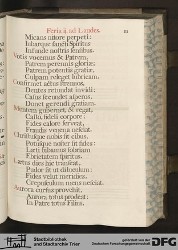 Feria ii. ad Laudes. iii
Micans nitore perpeti:
Iubarque sancti Spiritus
Infunde nostris sensibus.
Votis vocemus & Patrem,
Patrem perennis gloriæ:
Patrem potentis gratiæ,
Culpam releget lubricam.
Confirmet actus strenuos,
Dentes retundat invidi:
Casus secundet asperos,
Donet gerendi gratiam.
Mentem gubernet, & regat,
Casto, fideli corpore:
Fides calore ferveat,
Fraudis venena nesciat.
Christusque nobis sit cibus,
Potusque noster sit fides:
Læti bibamus sobriam
Ebrietatem Spiritus.
Lætus dies hic transeat,
Pudor sit ut diluculum:
Fides velut meridies,
Crepusculum mens nesciat.
Aurora cursus provehit,
Aurora totus prodeat,
In Patre totus Filius,
Stadtbibliothek
und Stadtarchiv Trier
gefördert von der
Deutschen Forschungsgemeinschaft
DFG